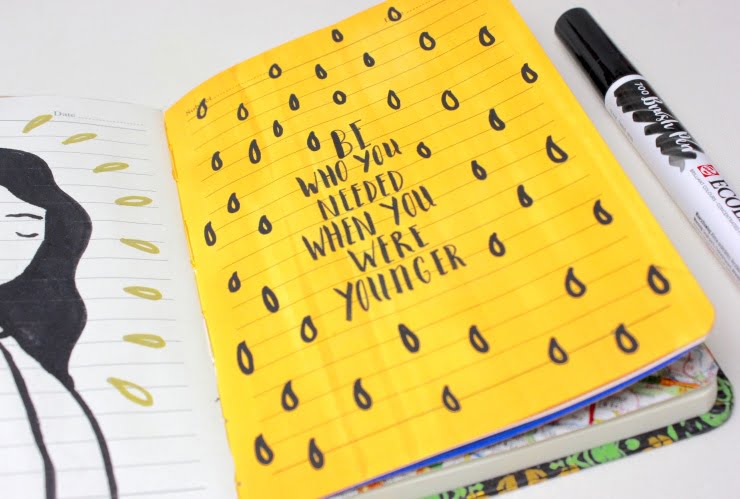 Date
BE
WHO YOU
NEEDED
WHEN YOU
WERE
YOUNGER
700
Brush Pen